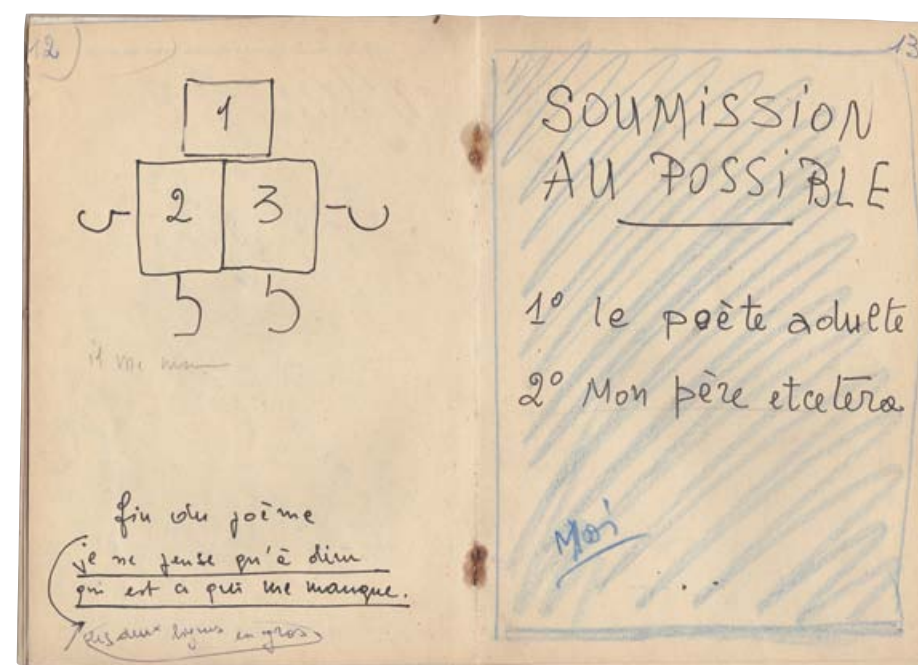 12
1
2 3
il me man
fin du poème
je ne pense qu'à dieu
qui est ce qui me manque.
les deux lignes en gros
13
SOUMiSSiON
AU POSSiBLE
1° le poète adulte
2° Mon père etcetera
Moi